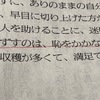 ずに、ありのままの自分
、早目に切り上げた方が
人を助けることに、迷
ずすのは、恥をかかな
収穫が多くて、満足で